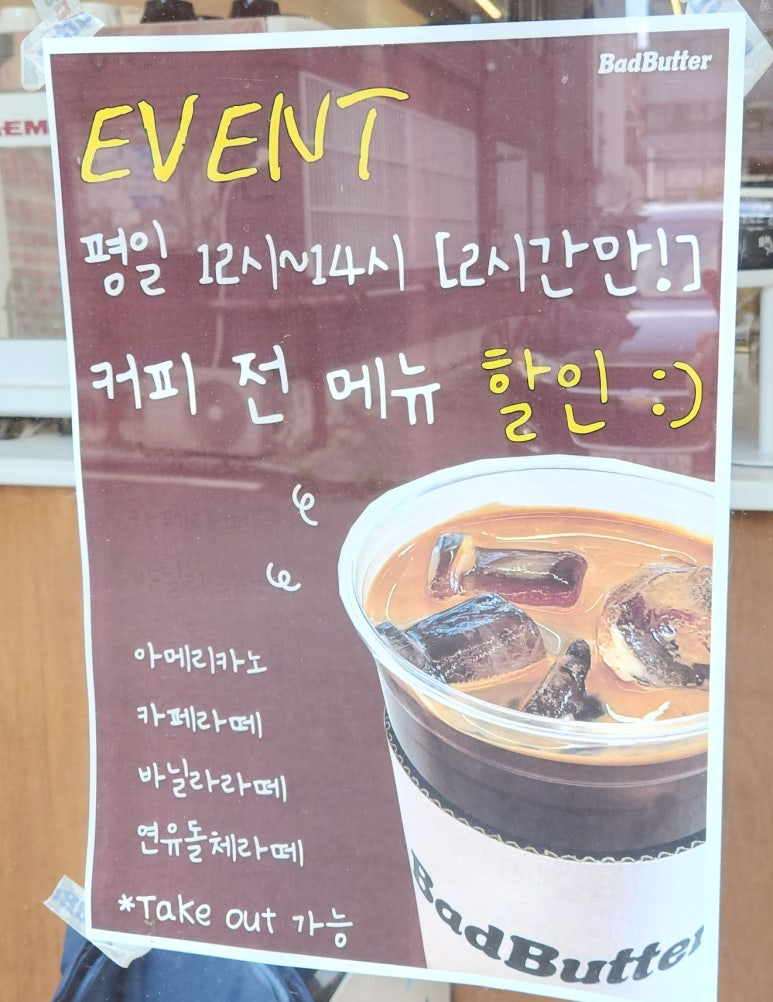 BadButter
EVENT
평일 12시~14시 [2시간만!]
커피 전 메뉴 할인 :)
아메리카노
카페라떼
바닐라라떼
연유돌체라떼
*Take out 가능
BadButter